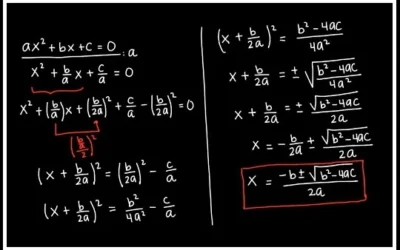 ax² + bx + c = 0 :a
x² + b/a x + c/a = 0
x² + (b/a)x + (b/2a)² + c/a - (b/2a)² = 0
(b/a/2)²
(x + b/2a)² = (b/2a)² - c/a
(x + b/2a)² = b²/4a² - c/a
(x + b/2a)² = b²-4ac/4a²
x + b/2a = ± √b²-4ac/4a²
x + b/2a = ± √b²-4ac/2a
x = -b/2a ± √b²-4ac/2a
x = -b ± √b²-4ac/2a